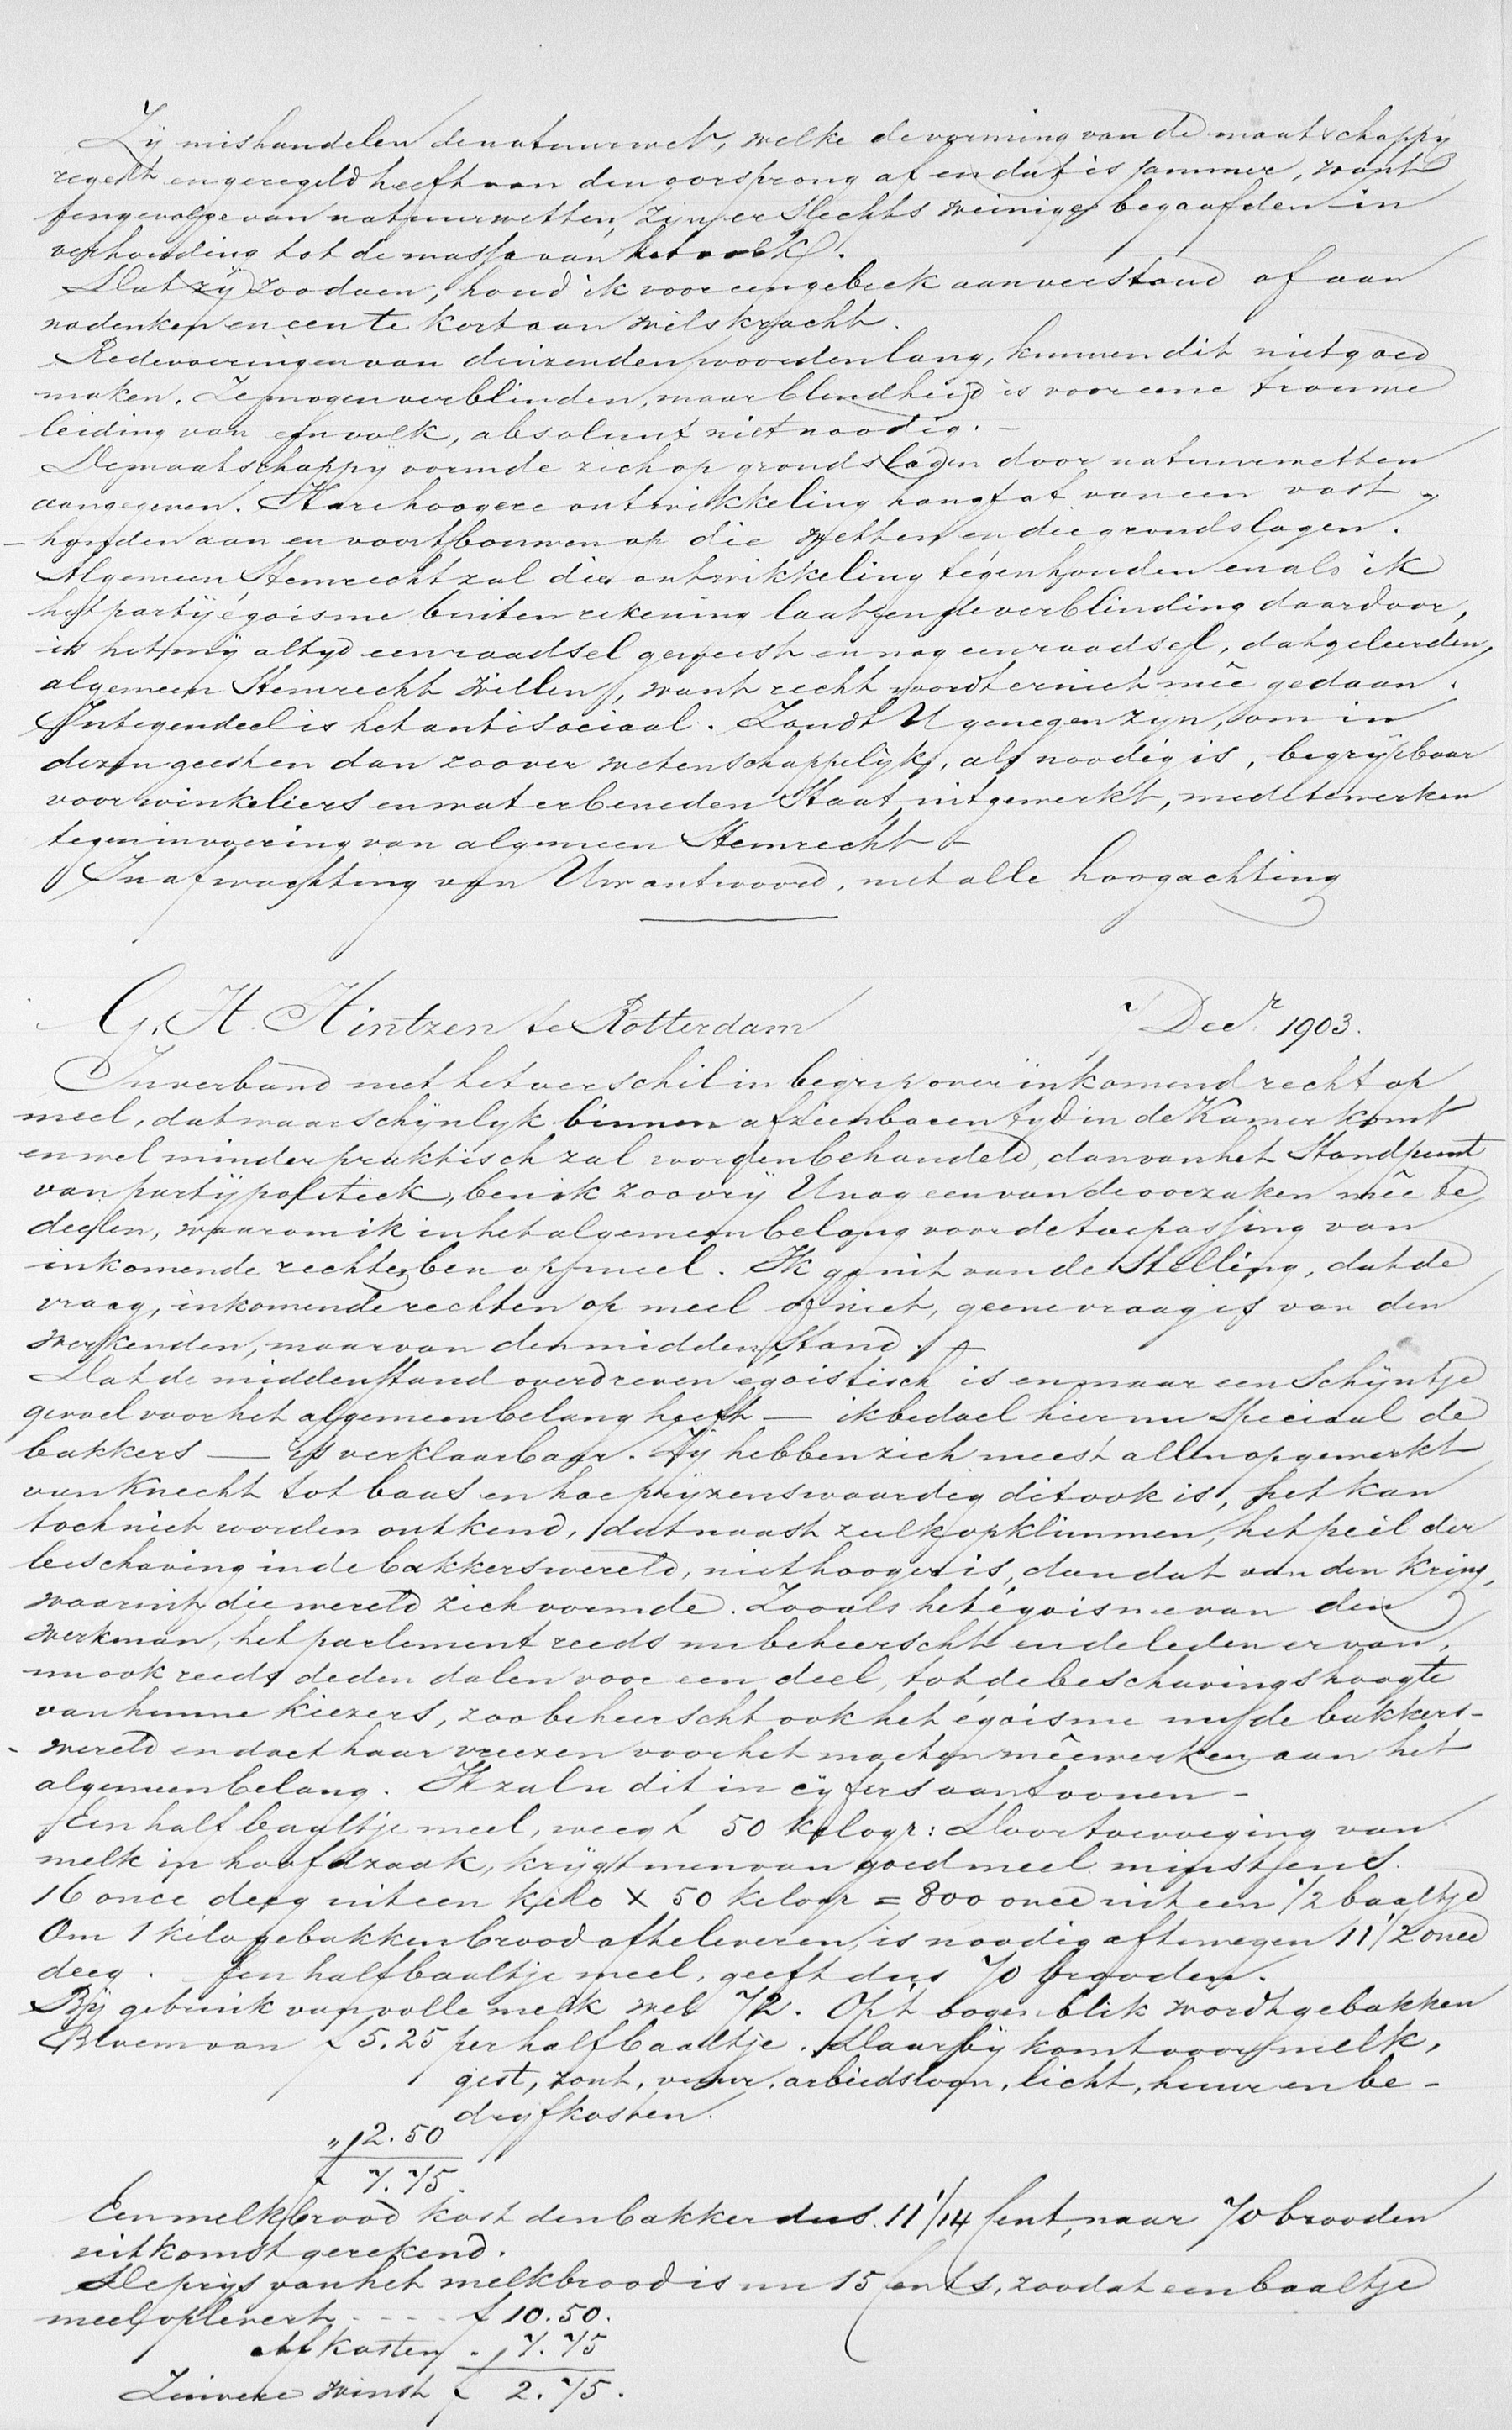 Zij mishandelen de natuurwet, welke de vorming van de maatschappij
regelt en geregeld heeft van den oorsprong af en dat is jammer, want
tengevolge van natuurwetten, zijn er slechts weinige begaafden in
verhouding tot de massa van het volk.
Dat zij zoo doen, houd ik voor een gebrek aan verstand of aan
nadenken en een te kort aan wilskracht.
Redevoeringen van duizenden woorden lang, kunnen dit niet goed
maken. Ze mogen verblinden, maar blindheid is voor eene trouwe
leiding van een volk, absoluut niet noodig. —
De maatschappij vormde zich op grondslagen door natuurwetten
aangegeven. Hare hoogere ontwikkeling hangt af van een vast-
-houden aan en voortbouwen op die wetten en die grondslagen.
Algemeen Stemrecht zal die ontwikkeling tegenhouden en als ik
het partijégoisme buiten rekening laat en de verblinding daardoor,
is het mij altijd een raadsel geweest en nog een raadsel, dat geleerden
algemeen Stemrecht willen, want recht wordt er niet mêe gedaan.
Integendeel is het antisociaal. Zoudt U genegen zijn, om in
dezen geest en dan zoover wetenschappelijk, als noodig is, begrijpbaar
voor winkeliers en wat er beneden staat, uitgewerkt, mede te werken
tegen invoering van algemeen Stemrecht. —
In afwachting van Uw antwoord, met alle hoogachting
G. H. Hintzen te Rotterdam 7 Decr. 1903.
In verband met het verschil in begrip over inkomend recht op
meel, dat waarschijnlijk binnen afzienbaren tijd in de Kamer komt
en wel minder praktisch zal worden behandeld, dan van het Standpunt
van partijpolitiek, ben ik zoo vrij U nog een van de oorzaken mêe te
deelen, waarom ik in het algemeen belang voor de toepassing van
inkomende rechten ben op meel. Ik ga uit van de Stelling, dat de
vraag, inkomende rechten op meel of niet, geene vraag is van den
werkenden, maar van den midden Stand. —
Dat de middenstand overdreven egoistisch is en maar een Schijntje
gevoel voor het algemeen belang heeft — ik bedoel hier nu Speciaal de
bakkers — is verklaarbaar. Zij hebben zich meest allen opgewerkt
van knecht tot baas en hoe prijzenswaardig dit ook is, het kan
toch niet worden ontkend, dat naast zulk opklimmen, het peil der
beschaving in de bakkerswereld, niet hooger is, dan dat van den kring,
waaruit die wereld zich vormde. Zooals het égoisme van den
werkman, het parlement reeds nu beheerscht en de leden ervan,
nu ook reeds deden dalen voor een deel, tot de beschavingshoogte
van hunne kiezers, zoo beheerscht ook het égoisme nu de bakkers-
-wereld en doet haar vreezen voor het moeten mêewerken aan het
algemeen belang. Ik zal u dit in cijfers aantoonen —
Een half baaltje meel, weegt 50 kilogr: Door toevoeging van
melk in hoofdzaak, krijgt men van goed meel minstens
16 once deeg uit een kilo x 50 kilogr = 800 once uit een 1/2 baaltje
Om 1 kilo gebakken brood af te leveren, is noodig af te wegen 11 1/2 once
deeg. Een half baaltje meel, geeft dus 70 brooden.
Bij gebruik van volle melk wel 72. Op 't oogenblik wordt gebakken
Bloem van f 5.25 per half baaltje. Daarbij komt voor melk,
gist, zout, vuur, arbeidsloon, licht, huur en be-
drijfkosten.
" 2.50
f 7.75.
Een melkbrood kost den bakker dus 11 1/14 Cent, naar 70 brooden
uitkomst gerekend.
De prijs van het melkbrood is nu 15 Cents, zoodat een baaltje
meel oplevert - - - - f 10.50.
Af kosten " 7.75
Zuivere winst f 2.75.